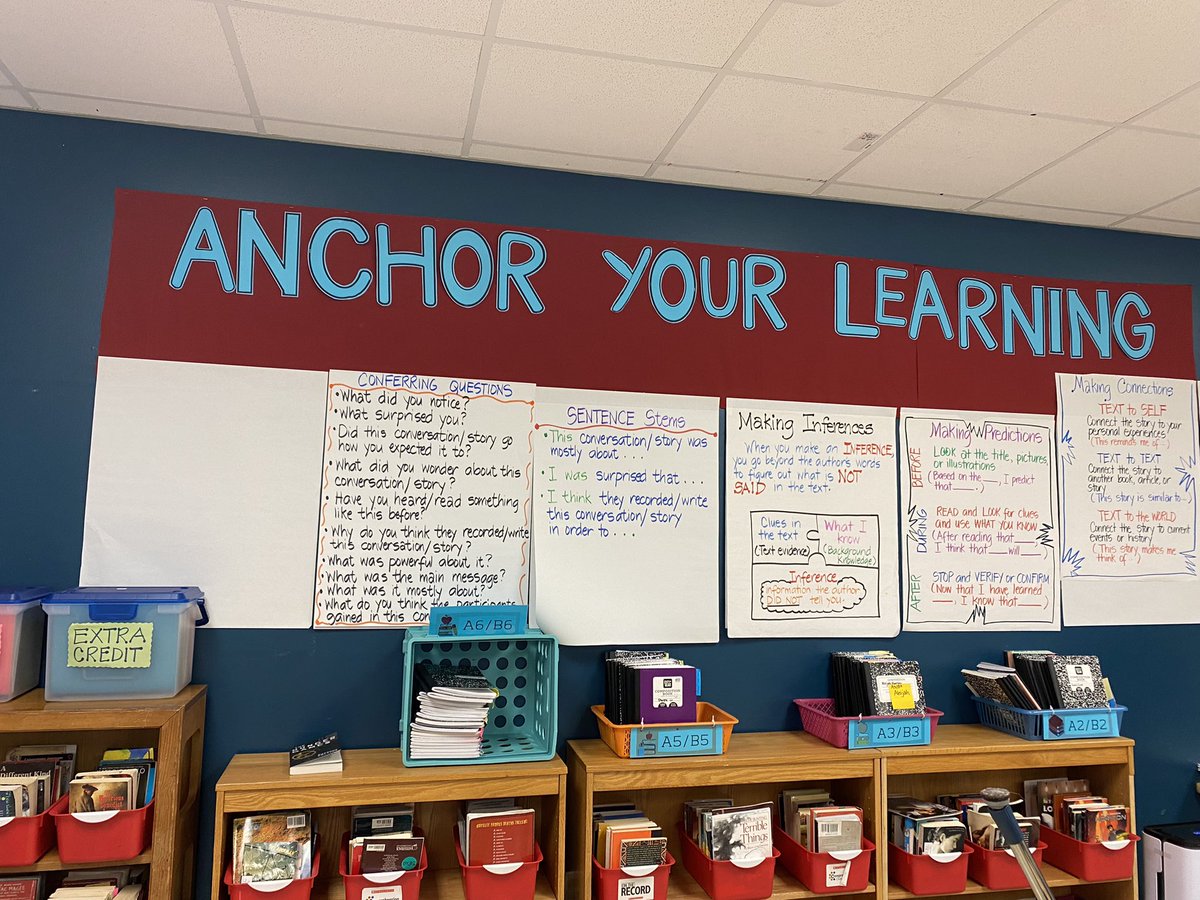 ANCHOR YOUR LEARNING
CONFERRING QUESTIONS
•What did you notice?
•What surprised you?
•Did this conversation/story go
how you expected it to?
•What did you wonder about this
conversation/story?
•Have you heard/read something
like this before?
•Why do you think they recorded/write
this conversation/story?
•What was powerful about it?
•What was the main message?
•What was it mostly about?
•What do you think the participants
gained in this con
SENTENCE Stems
•This conversation/story was
mostly about ...
•I was surprised that ...
•I think they recorded/write
this conversation/story
in order to ...
Making Inferences
When you make an INFERENCE,
you go beyond the authors words
to figure out what is NOT
SAID in the text.
Clues in
the text
(Text evidence)
What I
know
(Background
Knowledge)
Inference
information the author
DID NOT tell you.
Making Predictions
BEFORE
LOOK at the title, pictures,
or illustrations
(Based on the___, I predict
that___.)
DURING
READ and LOOK for clues
and use WHAT YOU KNOW
(After reading that___
I think that___will___.)
AFTER
STOP and VERIFY or CONFIRM
(Now that I have learned
___, I know that___)
Making Connections
TEXT to SELF
Connect the story to your
personal experiences
(This reminds me of...)
TEXT to TEXT
Connect the story to
another book, article, or
story
(This story is similar to...)
TEXT to the WORLD
Connect the story to current
events or history
(This story makes me
think of...)
EXTRA
CREDIT
A6/B6
A5/B5
A3/B3
A2/B2
COMPOSITION BOOK
Terrible
Things
ON THE
RECORD